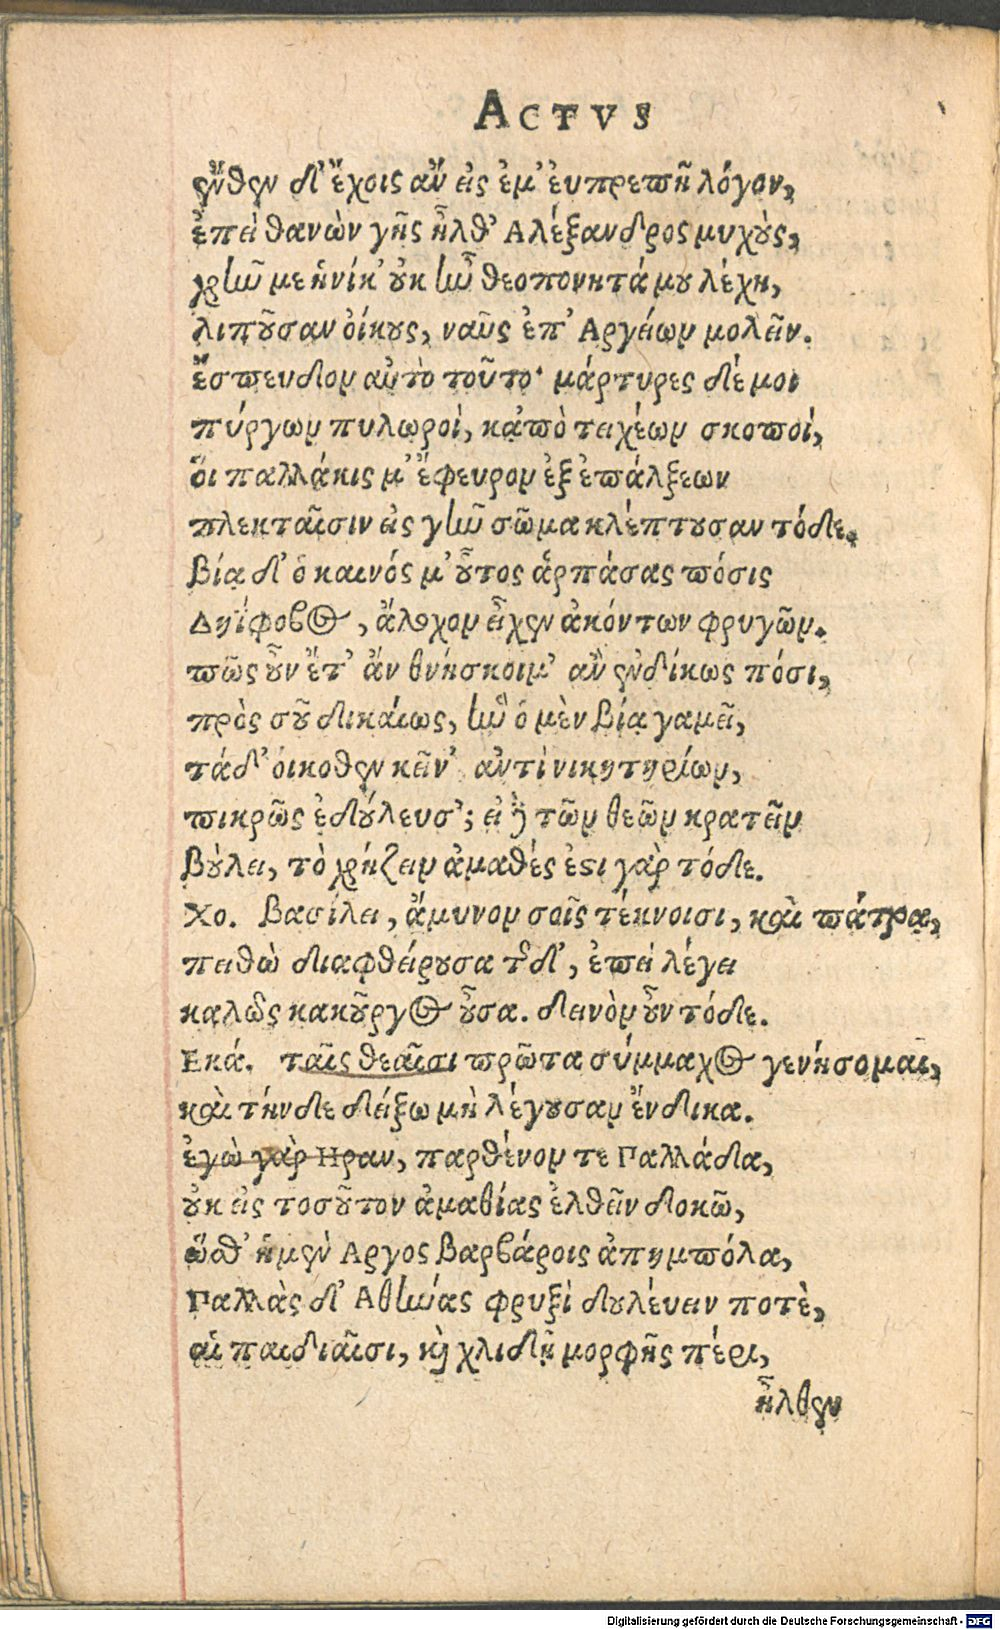 ACTVS
ἔνθεν δ' ἔχοις ἂν εἰς ἔμ' ἐυπρεπῆ λόγον,
ἐπεὶ θανὼν γῆς ἦλθ' Αλέξανδρος μυχοὺς,
χρῆν με ἡνίκ' οὐκ ἦν θεοπονητά μου λέχη,
λιποῦσαν ὀίκους, ναῦς ἐπ' Αργείων μολεῖν.
ἔσπευδον αὐτὸ τοῦτο· μάρτυρες δέ μοι
πύργων πυλωροὶ, κἀπὸ τειχέων σκοποί,
ὅι παλλάκις μ' ἔφευρον ἐξ ἐπάλξεων
πλεκταῖσιν εἰς γῆν σῶμα κλέπτουσαν τόδε.
βία δ' ὁ καινός μ' οὗτος ἁρπάσας πόσις
Δηΐφοβος, ἄλοχον εἶχεν ἀκόντων φρυγῶν.
πῶς οὖν ἔτ' ἄν θνήσκοιμ' ἂν ἐνδίκως πόσι,
πρὸς σοῦ δικαίως, ἣν ὁ μὲν βία γαμεῖ,
τάδ' ὀίκοθεν κεῖν' ἀντὶ νικητηρίων,
πικρῶς ἐδούλευσ'; εἰ δὲ τῶν θεῶν κρατεῖν
βούλει, τὸ χρήζειν ἀμαθές ἐστι γὰρ τόδε.
Χο. βασίλει, ἄμυνον σοῖς τέκνοισι, καὶ πάτρα,
πειθὼ διαφθείρουσα τῆσδ', ἐπεὶ λέγει
καλῶς κακοῦργος οὖσα. δεινὸν οὖν τόδε.
Εκά. ταῖς θεαῖσι πρῶτα σύμμαχος γενήσομαι,
καὶ τήνδε δείξω μὴ λέγουσαν ἔνδικα.
ἐγὼ γὰρ Ηραν, παρθένον τε Παλλάδα,
οὐκ εἰς τοσοῦτον ἀμαθίας ἐλθεῖν δοκῶ,
ὥσθ' ἡ μὲν Αργος βαρβάροις ἀπημπόλα,
Παλλὰς δ' Αθήνας φρυξὶ δουλέυειν ποτὲ,
αἱ παιδιαῖσι, καὶ χλιδῇ μορφῆς πέρι,
ἦλθεν
Digitalisierung gefördert durch die Deutsche Forschungsgemeinschaft - DFG